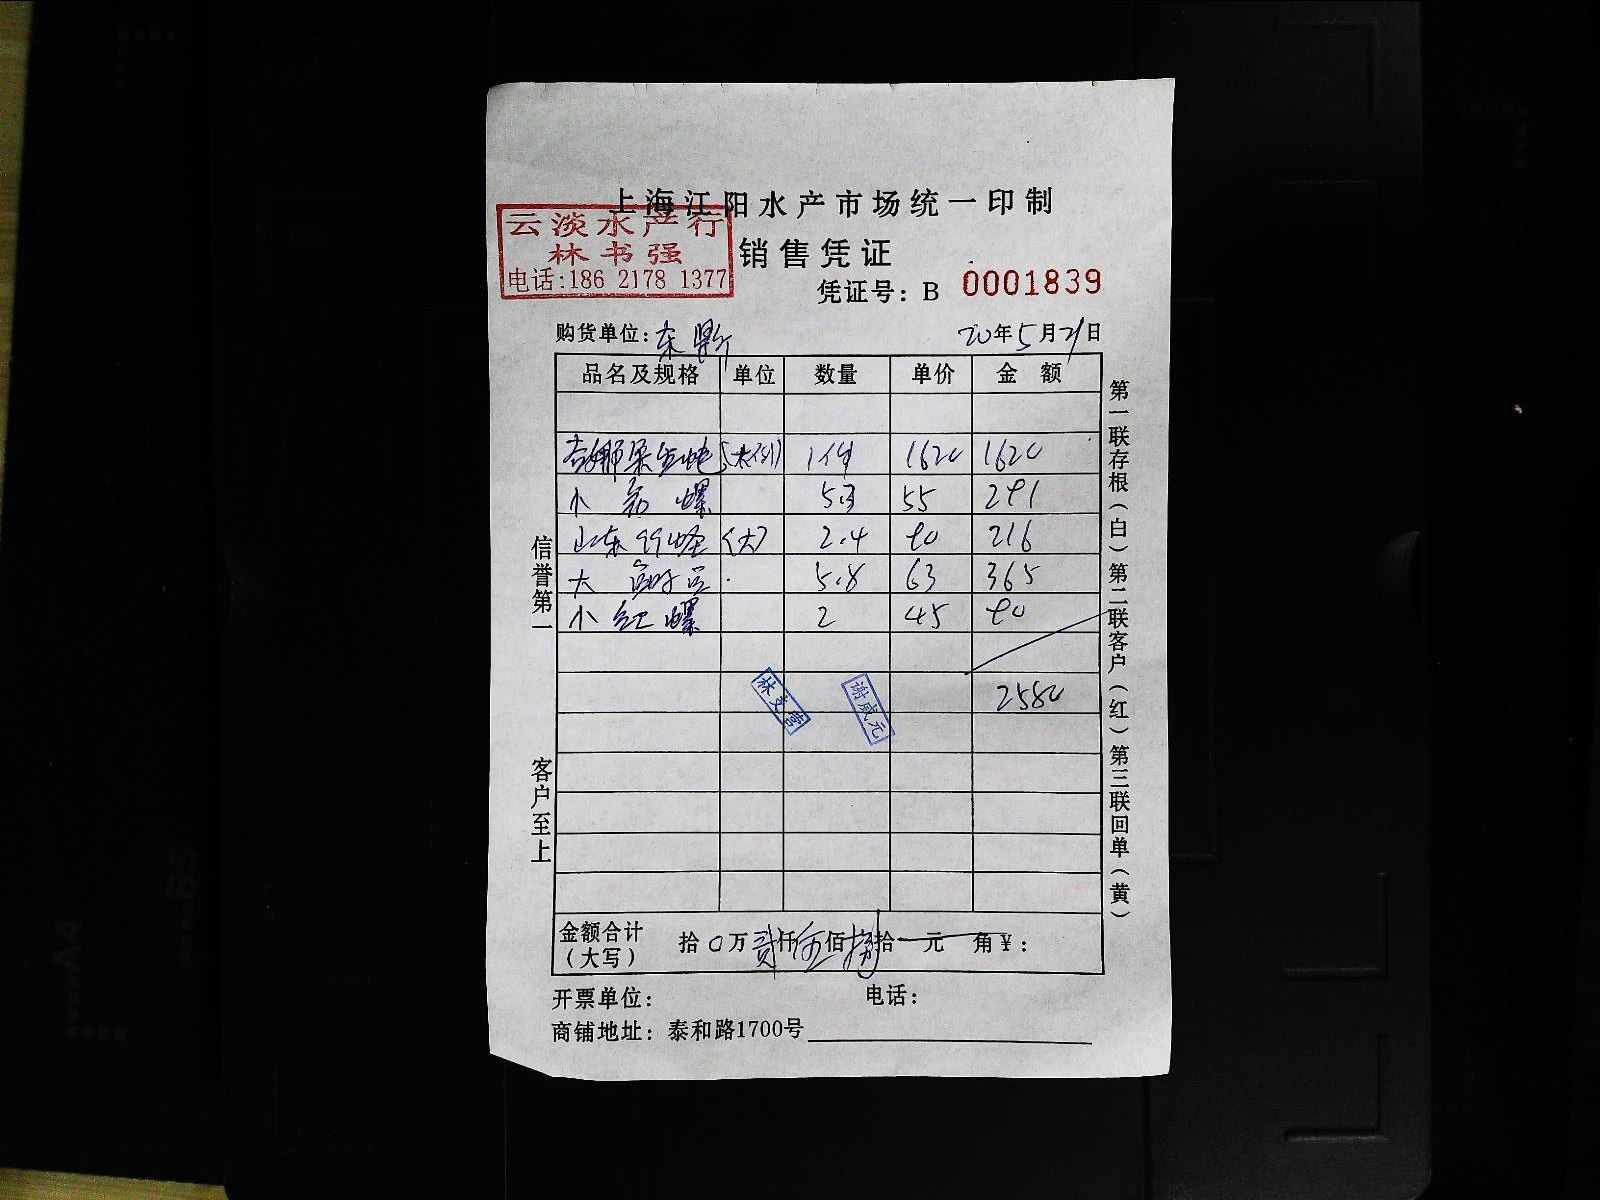 上海江阳水产市场统一印制
云淡水产行
林书强
电话:186 2178 1377
销售凭证
凭证号：B 0001839
购货单位：东
20年5月21日
品名及规格 单位 数量 单价 金 额
1件 1620 1620
小 螺 5.3 55 291
山东 蛏 (大) 2.4 90 216
大 5.8 63 365
小红螺 2 45 90
2580
林文营
谢咸元
信誉第一
客户至上
第一联存根（白）第二联客户（红）第三联回单（黄）
金额合计（大写） 拾0万贰仟伍佰捌拾一元 角¥：
开票单位：
电话：
商铺地址：泰和路1700号